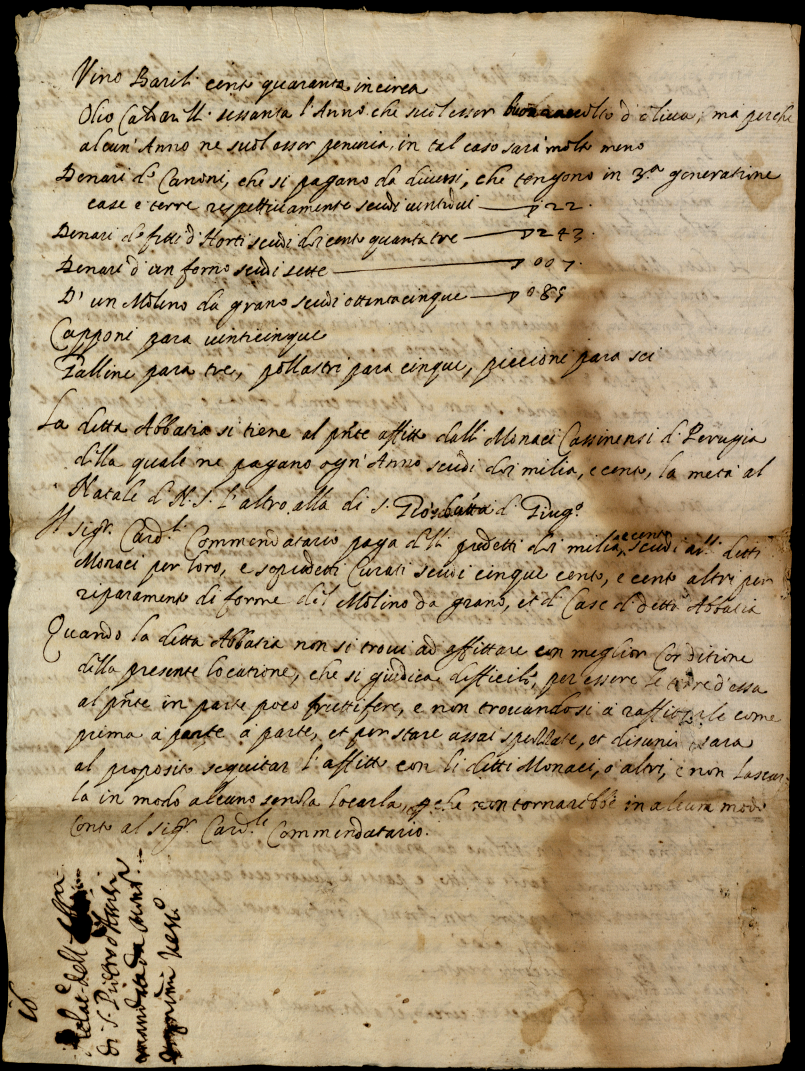 Vino Barili cento quaranta incirca
Olio Catarulli sessanta l'Anno che suol esser buon racolto d'oliva, ma perche
alcun'Anno ne suol esser penuria, in tal caso sarà molto meno
Denari de Canoni, che si pagano da diversi, che tengono in 3.a generatione
case e terre respettivamente scudi vintidui — 22.
Denari de fitti d'Horti scudi ducento quarantatre — 243.
Denari d'un forno scudi sette — 007.
D'un Molino da grano scudi ottantacinque — 085
Capponi para vinticinque
Galline para tre, pollastri para cinque, piccioni para sei
La detta Abbatia si tiene al pnte affitto dalli Monaci Cassinensi di Perugia
della quale ne pagano ogn'Anno scudi doi milia, e cento, la metà al
Natale di N.S. l'altro alla di s. Gio: batta di Giug.o
Il sigr. Card.le Commendatario paga delli predetti doi milia, e cento scudi alli detti
Monaci per loro, e sopradetti Curati scudi cinque cento, e cento altri per
riparamento di forme del Molino da grano, et di Case di detta Abbatia
Quando la detta Abbatia non si trovi ad affittare con meglior conditione
della presente locatione, che si giudica difficile, per essere le terre d'essa
al pnte in parte poco fruttifere, e non trovandosi a raffittarle come
prima a parte a parte, et per stare assai spezzate, et disunite sara
al proposito seguitar l'affitto con li detti Monaci, o altri, e non lascar
la in modo alcuno senza locarla, che non tornarebbe in alcun modo
conto al sigr. Card.le Commendatario.
di S. Pietro
mandata da
16